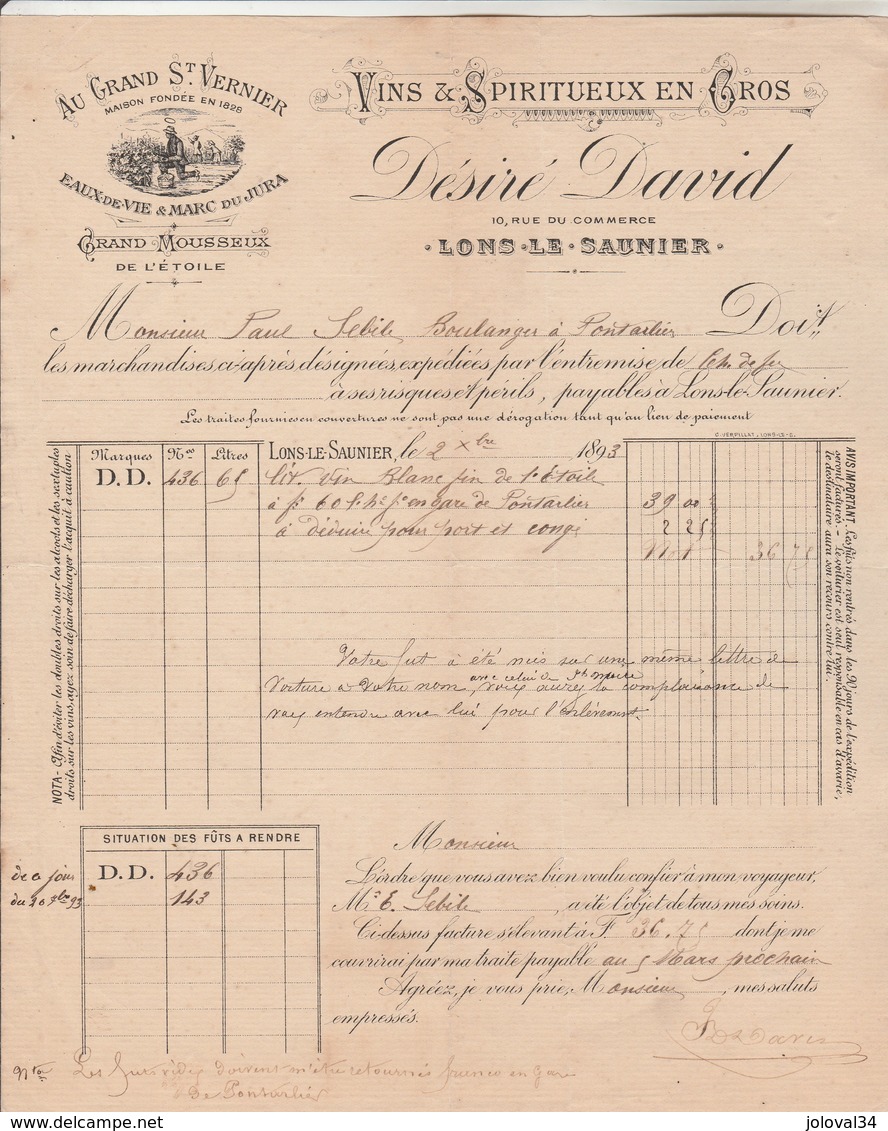 AU GRAND ST VERNIER
MAISON FONDÉE EN 1828
EAUX-DE-VIE & MARC DU JURA
GRAND MOUSSEUX
DE L'ÉTOILE
VINS & SPIRITUEUX EN GROS
Désiré David
10, RUE DU COMMERCE
LONS-LE-SAUNIER
Monsieur Paul Sebile Boulanger à Pontarlier Doit,
les marchandises ci-après désignées, expédiées par l'entremise de Ch. de fer
à ses risques et périls, payables à Lons-le-Saunier.
Les traites fournies en couvertures ne sont pas une dérogation tant qu'au lieu de paiement
C. VERPILLAT, LONS-LE-S.
Marques Nos Litres LONS-LE-SAUNIER, le 2 Xbre 1893
D.D. 436 65 lit. vin Blanc fin de l'étoile
à f. 60 l'h. fo en gare de Pontarlier 39 00
à déduire pour port et congé 2 25
Net 36 75
Votre fut à été mis sur une même lettre de
voiture à votre nom, avec celui de
vous aurez la complaisance de
vous entendre avec lui pour l'enlèvement.
NOTA - Afin d'éviter les doubles droits sur les alcools et les sextuples
droits sur les vins, ayez soin de faire décharger l'acquit à caution
AVIS IMPORTANT. Les fûts non rentrés dans les 90 jours de l'expédition
seront facturés - Le voiturier est seul responsable en cas d'avarie,
le destinataire aura son recours contre lui.
SITUATION DES FÛTS A RENDRE
de ce jour D.D. 436
du 20 93 143
Monsieur
L'ordre que vous avez bien voulu confier à mon voyageur,
Mr E. Sebile, a été l'objet de tous mes soins.
Ci-dessus facture s'élevant à F. 36.75 dont je me
couvrirai par ma traite payable au 5 Mars prochain
Agréez, je vous prie, Monsieur, mes saluts
empressés.
David
Nota Les futs vides doivent m'être retournés franco en Gare
de Pontarlier
delcampe.net
joloval34